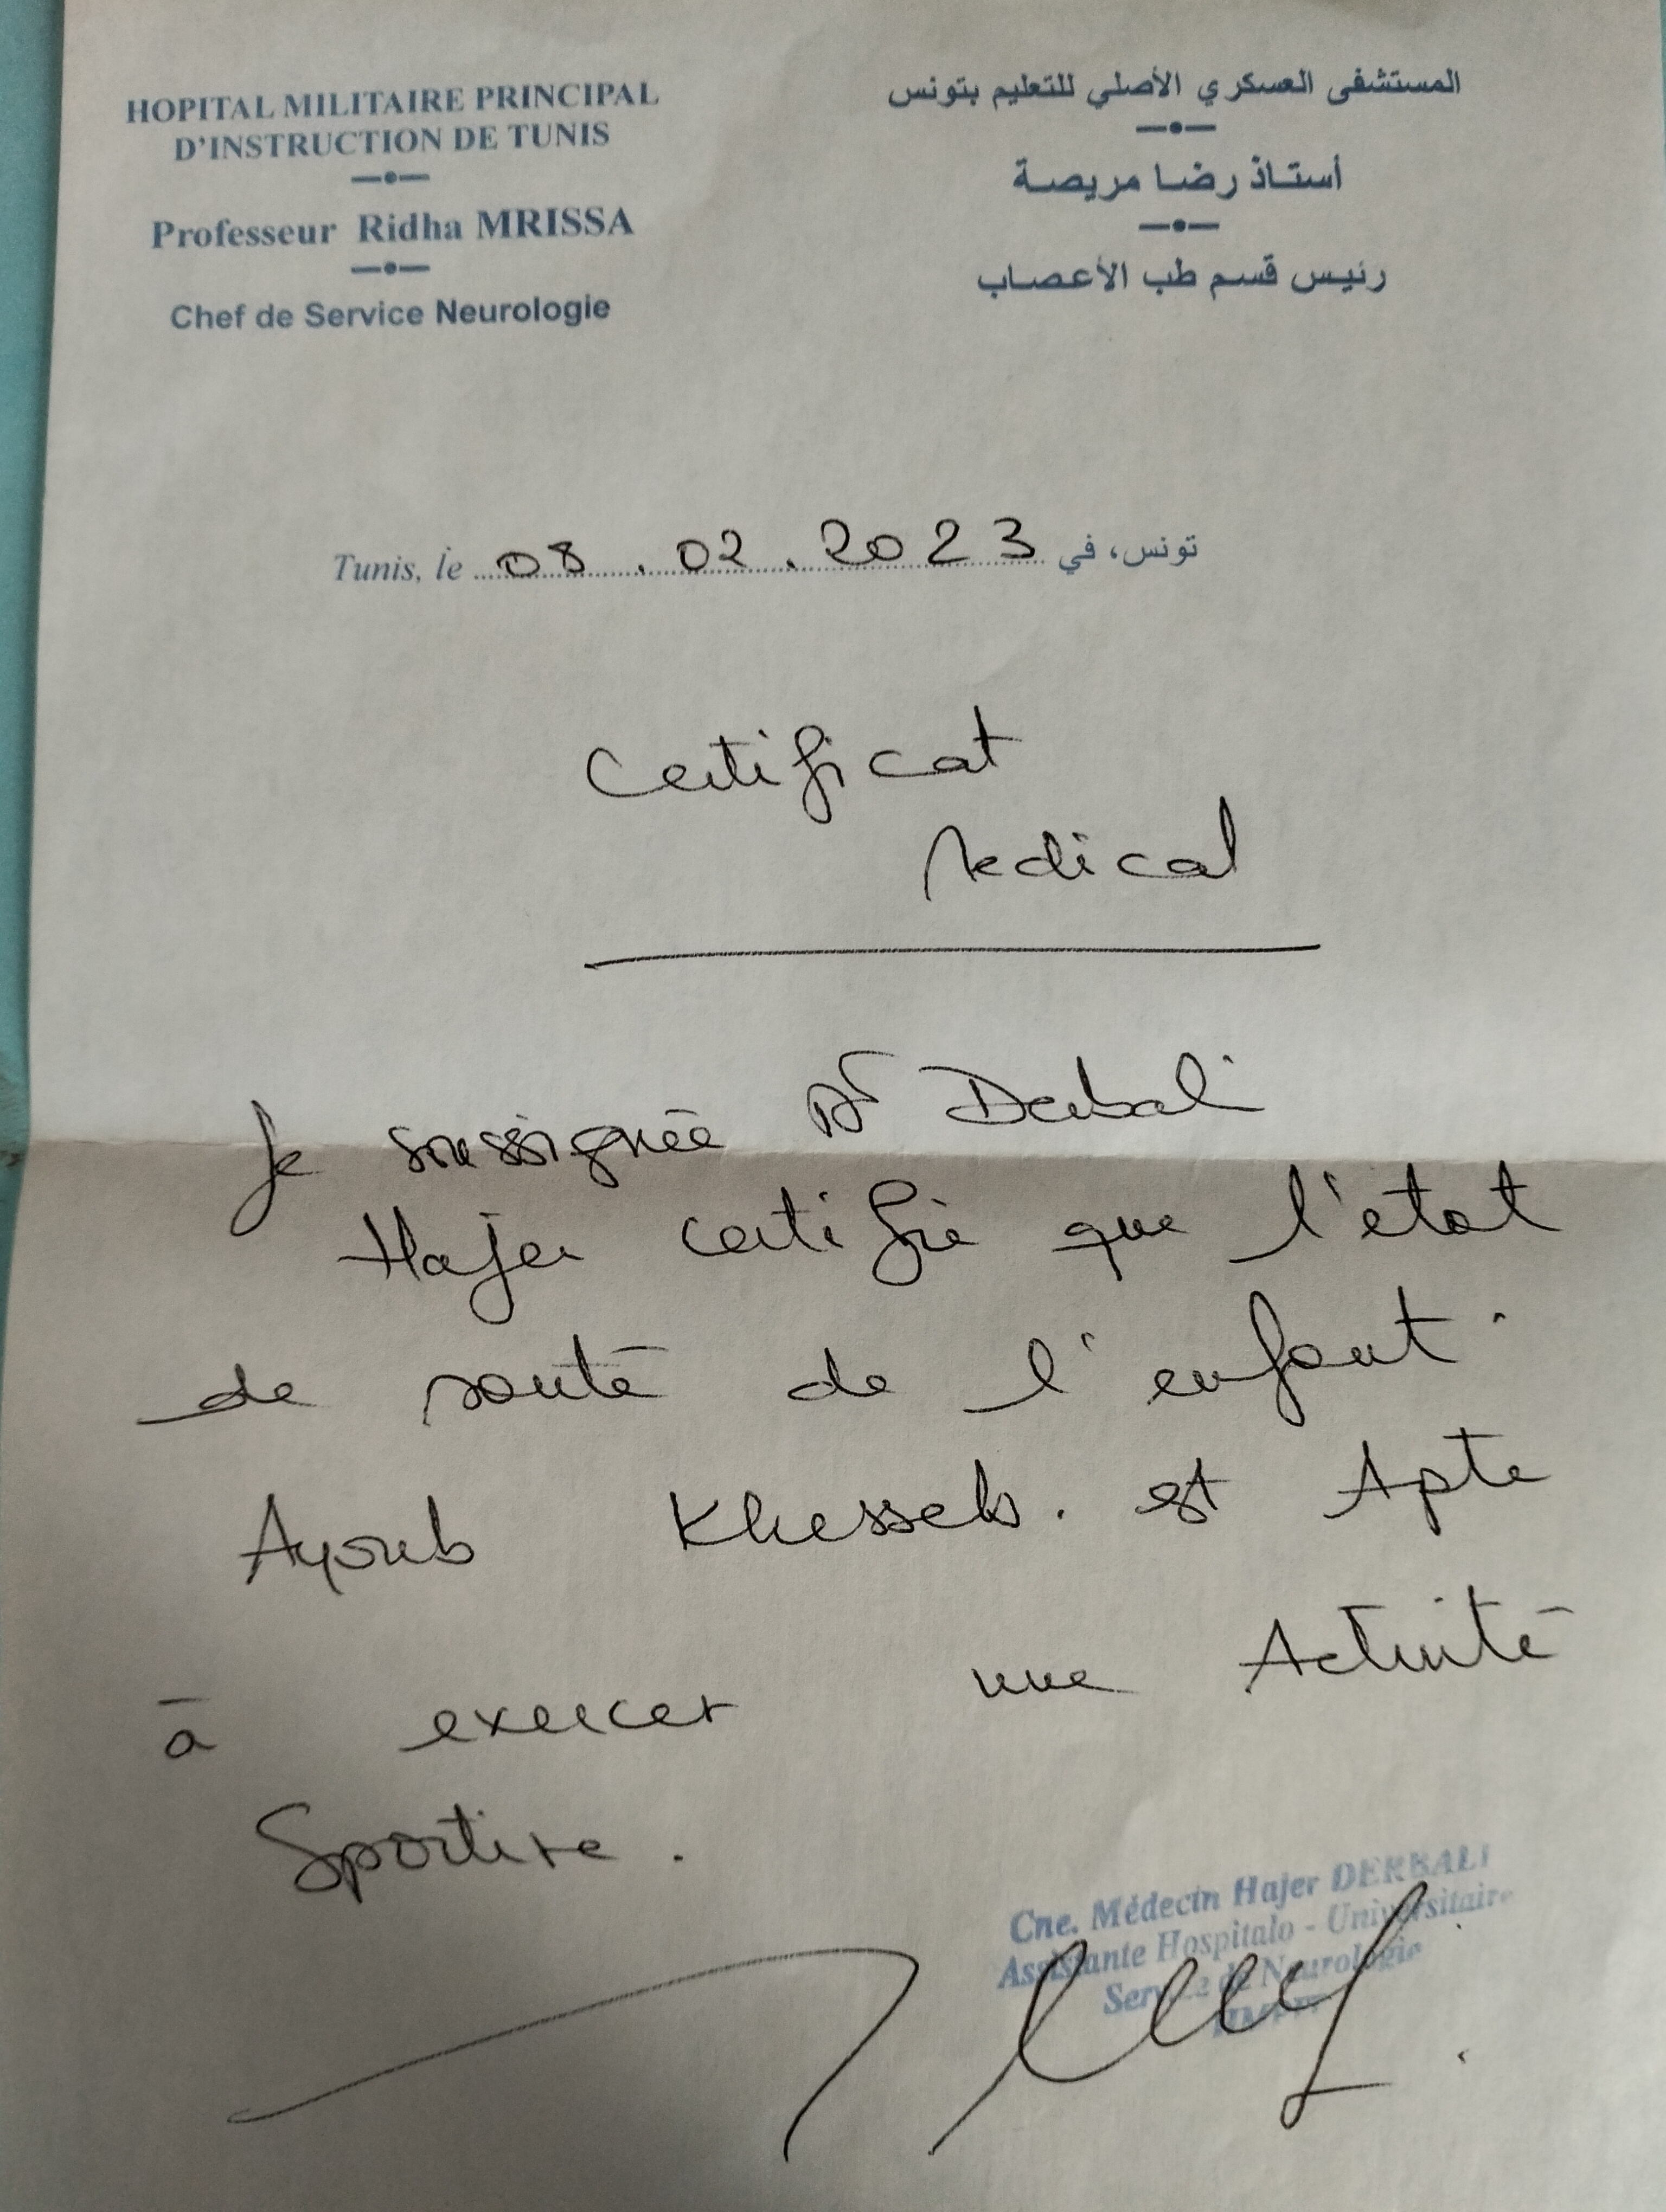 HOPITAL MILITAIRE PRINCIPAL
D'INSTRUCTION DE TUNIS
Professeur Ridha MRISSA
Chef de Service Neurologie
المستشفى العسكري الأصلي للتعليم بتونس
أستاذ رضا مريصة
رئيس قسم طب الأعصاب
Tunis, le 08.02.2023 تونس، في
Certificat
Medical
Je soussignée Dr Derbali
Hajer certifie que l'état
de santé de l'enfant.
Ayoub Khesseb. est Apte
à exercer une Activité
Sportive.
Cne. Médecin Hajer DERBALI
Assistante Hospitalo - Universitaire
Service de Neurologie